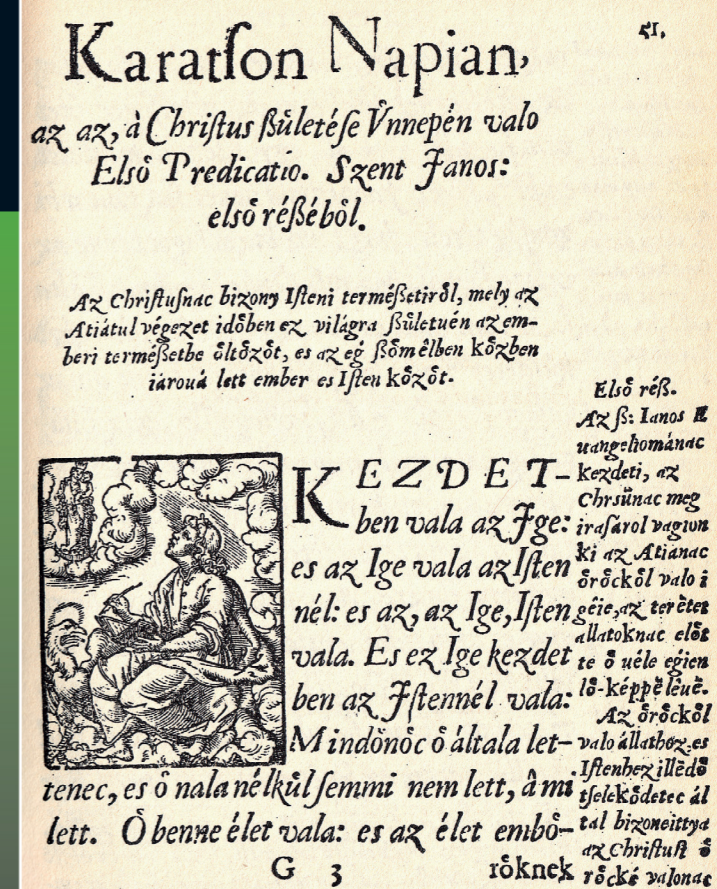 51.
Karatſon Napian,
az az, à Chriſtus ßůletéſe Vͦnnepén valo
Elsö Predicatio. Szent Janos:
elsö réßéböl.
Az Chriſtuſnac bizony Iſteni terméßetiröl, mely az
Atiátul végezet idöben ez világra ßůletuén az em-
beri terméßetbe öltözöt, es az eg ßömêlben közben
iárouá lett ember es Iſten közöt.
KEZDET-
ben vala az Jge:
es az Ige vala az Iſten
nél: es az, az Ige, Iſten
vala. Es ez Ige kezdet
ben az Jſtennél vala:
Mindönöc ö általa let-
tenec, es ö nala nélkůl ſemmi nem lett, â mi
lett. Ö benne élet vala: es az élet embö-
G 3 röknek
Elsö réß.
Az ß: Ianos E
uangeliománac
kezdeti, az
Chrsůnac meg
iraſárol vagion
ki az Atiánac
öröcköl valo i
géie, az terêtet
allatoknac elöt
te ö uéle egien
lö-képpê léuê.
Az öröcköl
valo állathoz, es
Iſtenhez illédö
tſeleködetec ál
tal bizoneittya
az Chriſtuſt ö
röcké valonac